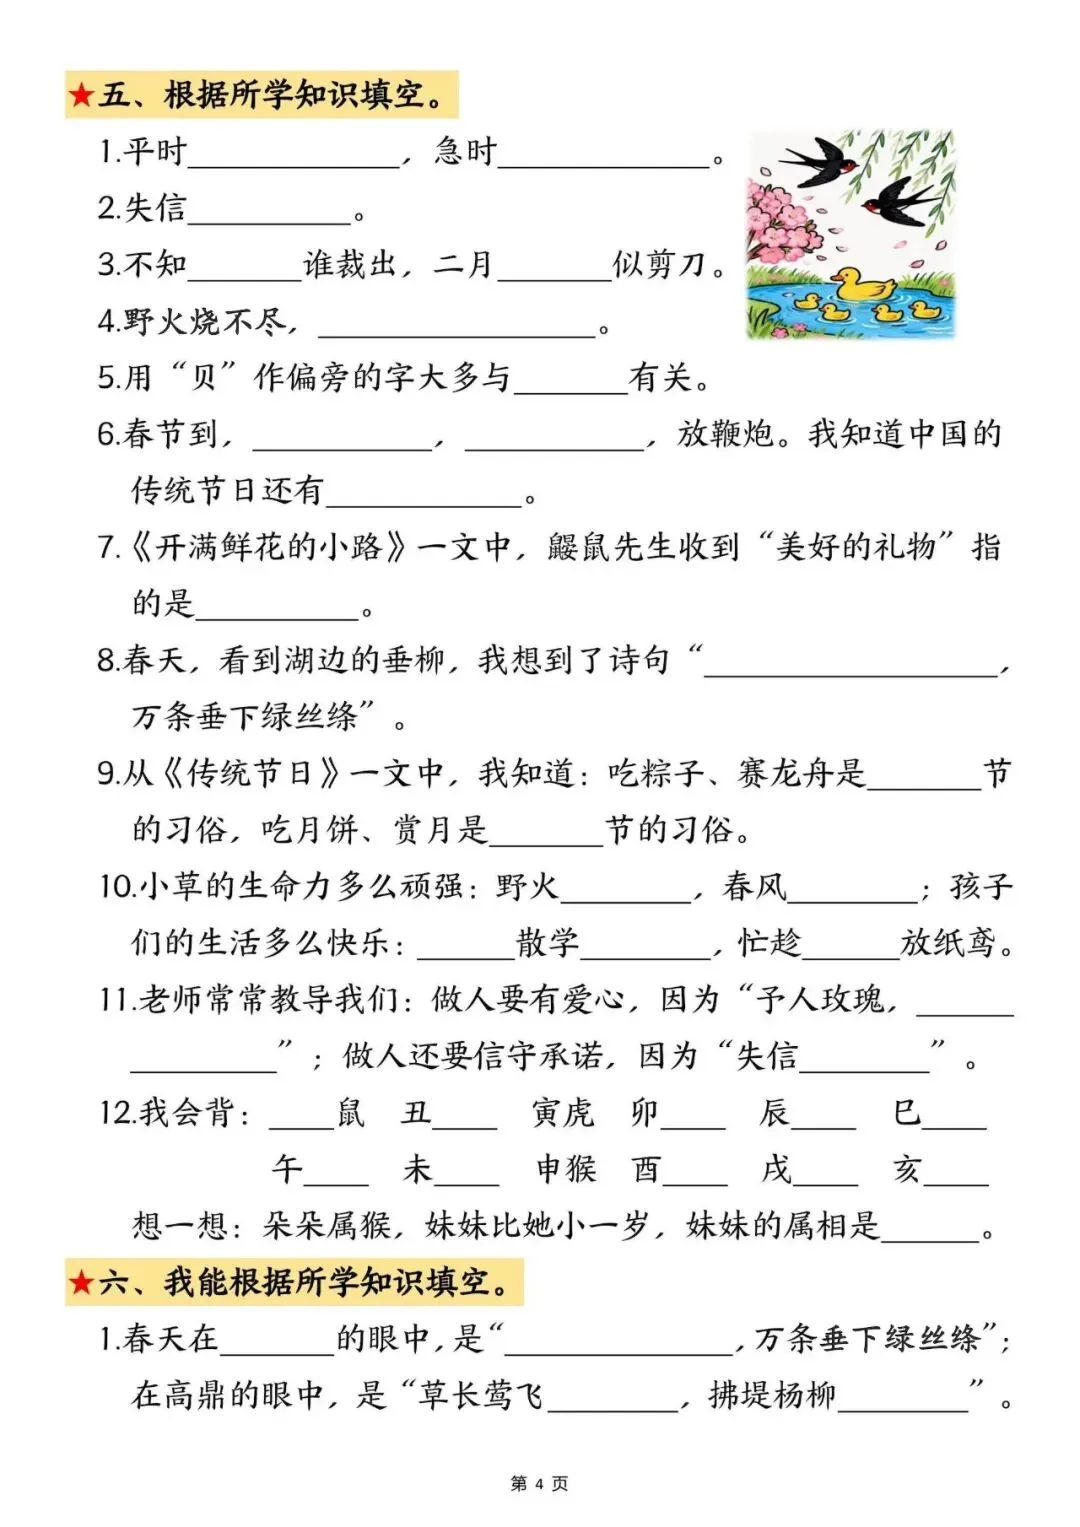 ★五、根据所学知识填空。
1.平时_____________，急时_____________。
2.失信__________。
3.不知_______谁裁出，二月_______似剪刀。
4.野火烧不尽，_________________。
5.用“贝”作偏旁的字大多与_______有关。
6.春节到，___________，___________，放鞭炮。我知道中国的
传统节日还有____________。
7.《开满鲜花的小路》一文中，鼹鼠先生收到“美好的礼物”指
的是__________。
8.春天，看到湖边的垂柳，我想到了诗句“__________________，
万条垂下绿丝绦”。
9.从《传统节日》一文中，我知道：吃粽子、赛龙舟是_______节
的习俗，吃月饼、赏月是_______节的习俗。
10.小草的生命力多么顽强：野火________，春风________；孩子
们的生活多么快乐：______散学________，忙趁______放纸鸢。
11.老师常常教导我们：做人要有爱心，因为“予人玫瑰，______
_________”；做人还要信守承诺，因为“失信________”。
12.我会背：____鼠 丑____ 寅虎 卯____ 辰____ 巳____
午____ 未____ 申猴 酉____ 戌____ 亥____
想一想：朵朵属猴，妹妹比她小一岁，妹妹的属相是______。
★六、我能根据所学知识填空。
1.春天在_______的眼中,是“______________,万条垂下绿丝绦”；
在高鼎的眼中，是“草长莺飞________，拂堤杨柳________”。
第 4 页